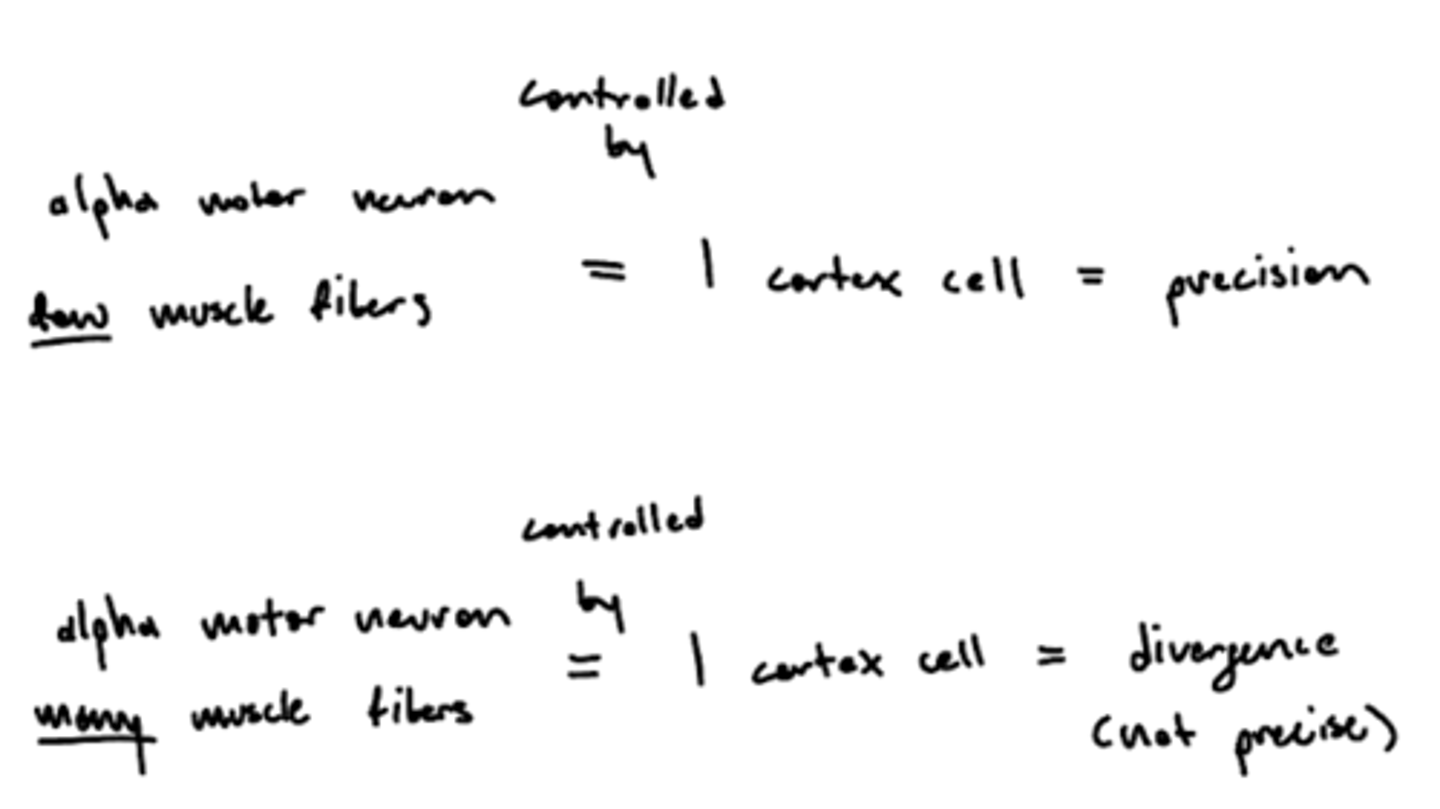 controlled
by
alpha motor neuron
few muscle fibers = 1 cortex cell = precision
controlled
by
alpha motor neuron
many muscle fibers = 1 cortex cell = divergence
(not precise)